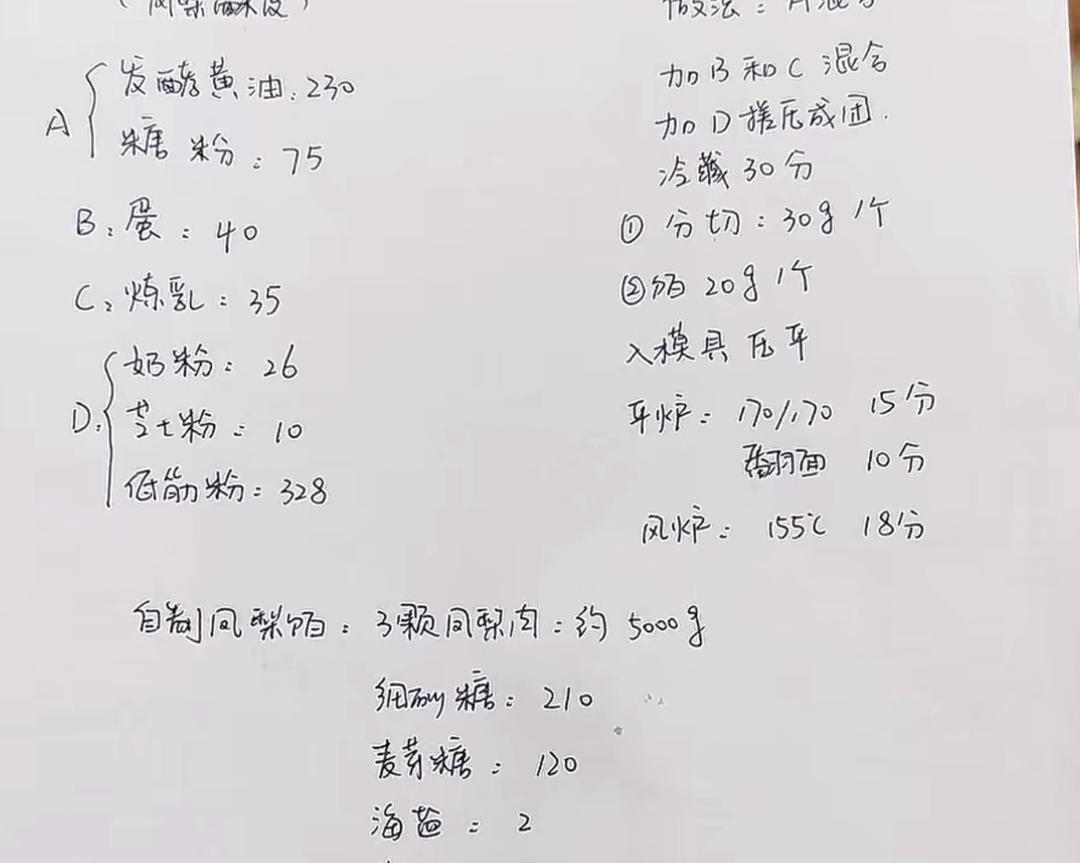 （凤梨酥皮）
A
发酵黄油：230
糖粉：75
B：蛋：40
C：炼乳：35
D：
奶粉：26
芝士粉：10
低筋粉：328
做法：A混合
加B和C混合
加D搓压成团.
冷藏30分
① 分切：30g 1个
②馅 20g 1个
入模具压平
平炉：170/170 15分
翻面 10分
风炉：155℃ 18分
自制凤梨馅：3颗凤梨肉：约5000g
细砂糖：210
麦芽糖：120
海盐：2